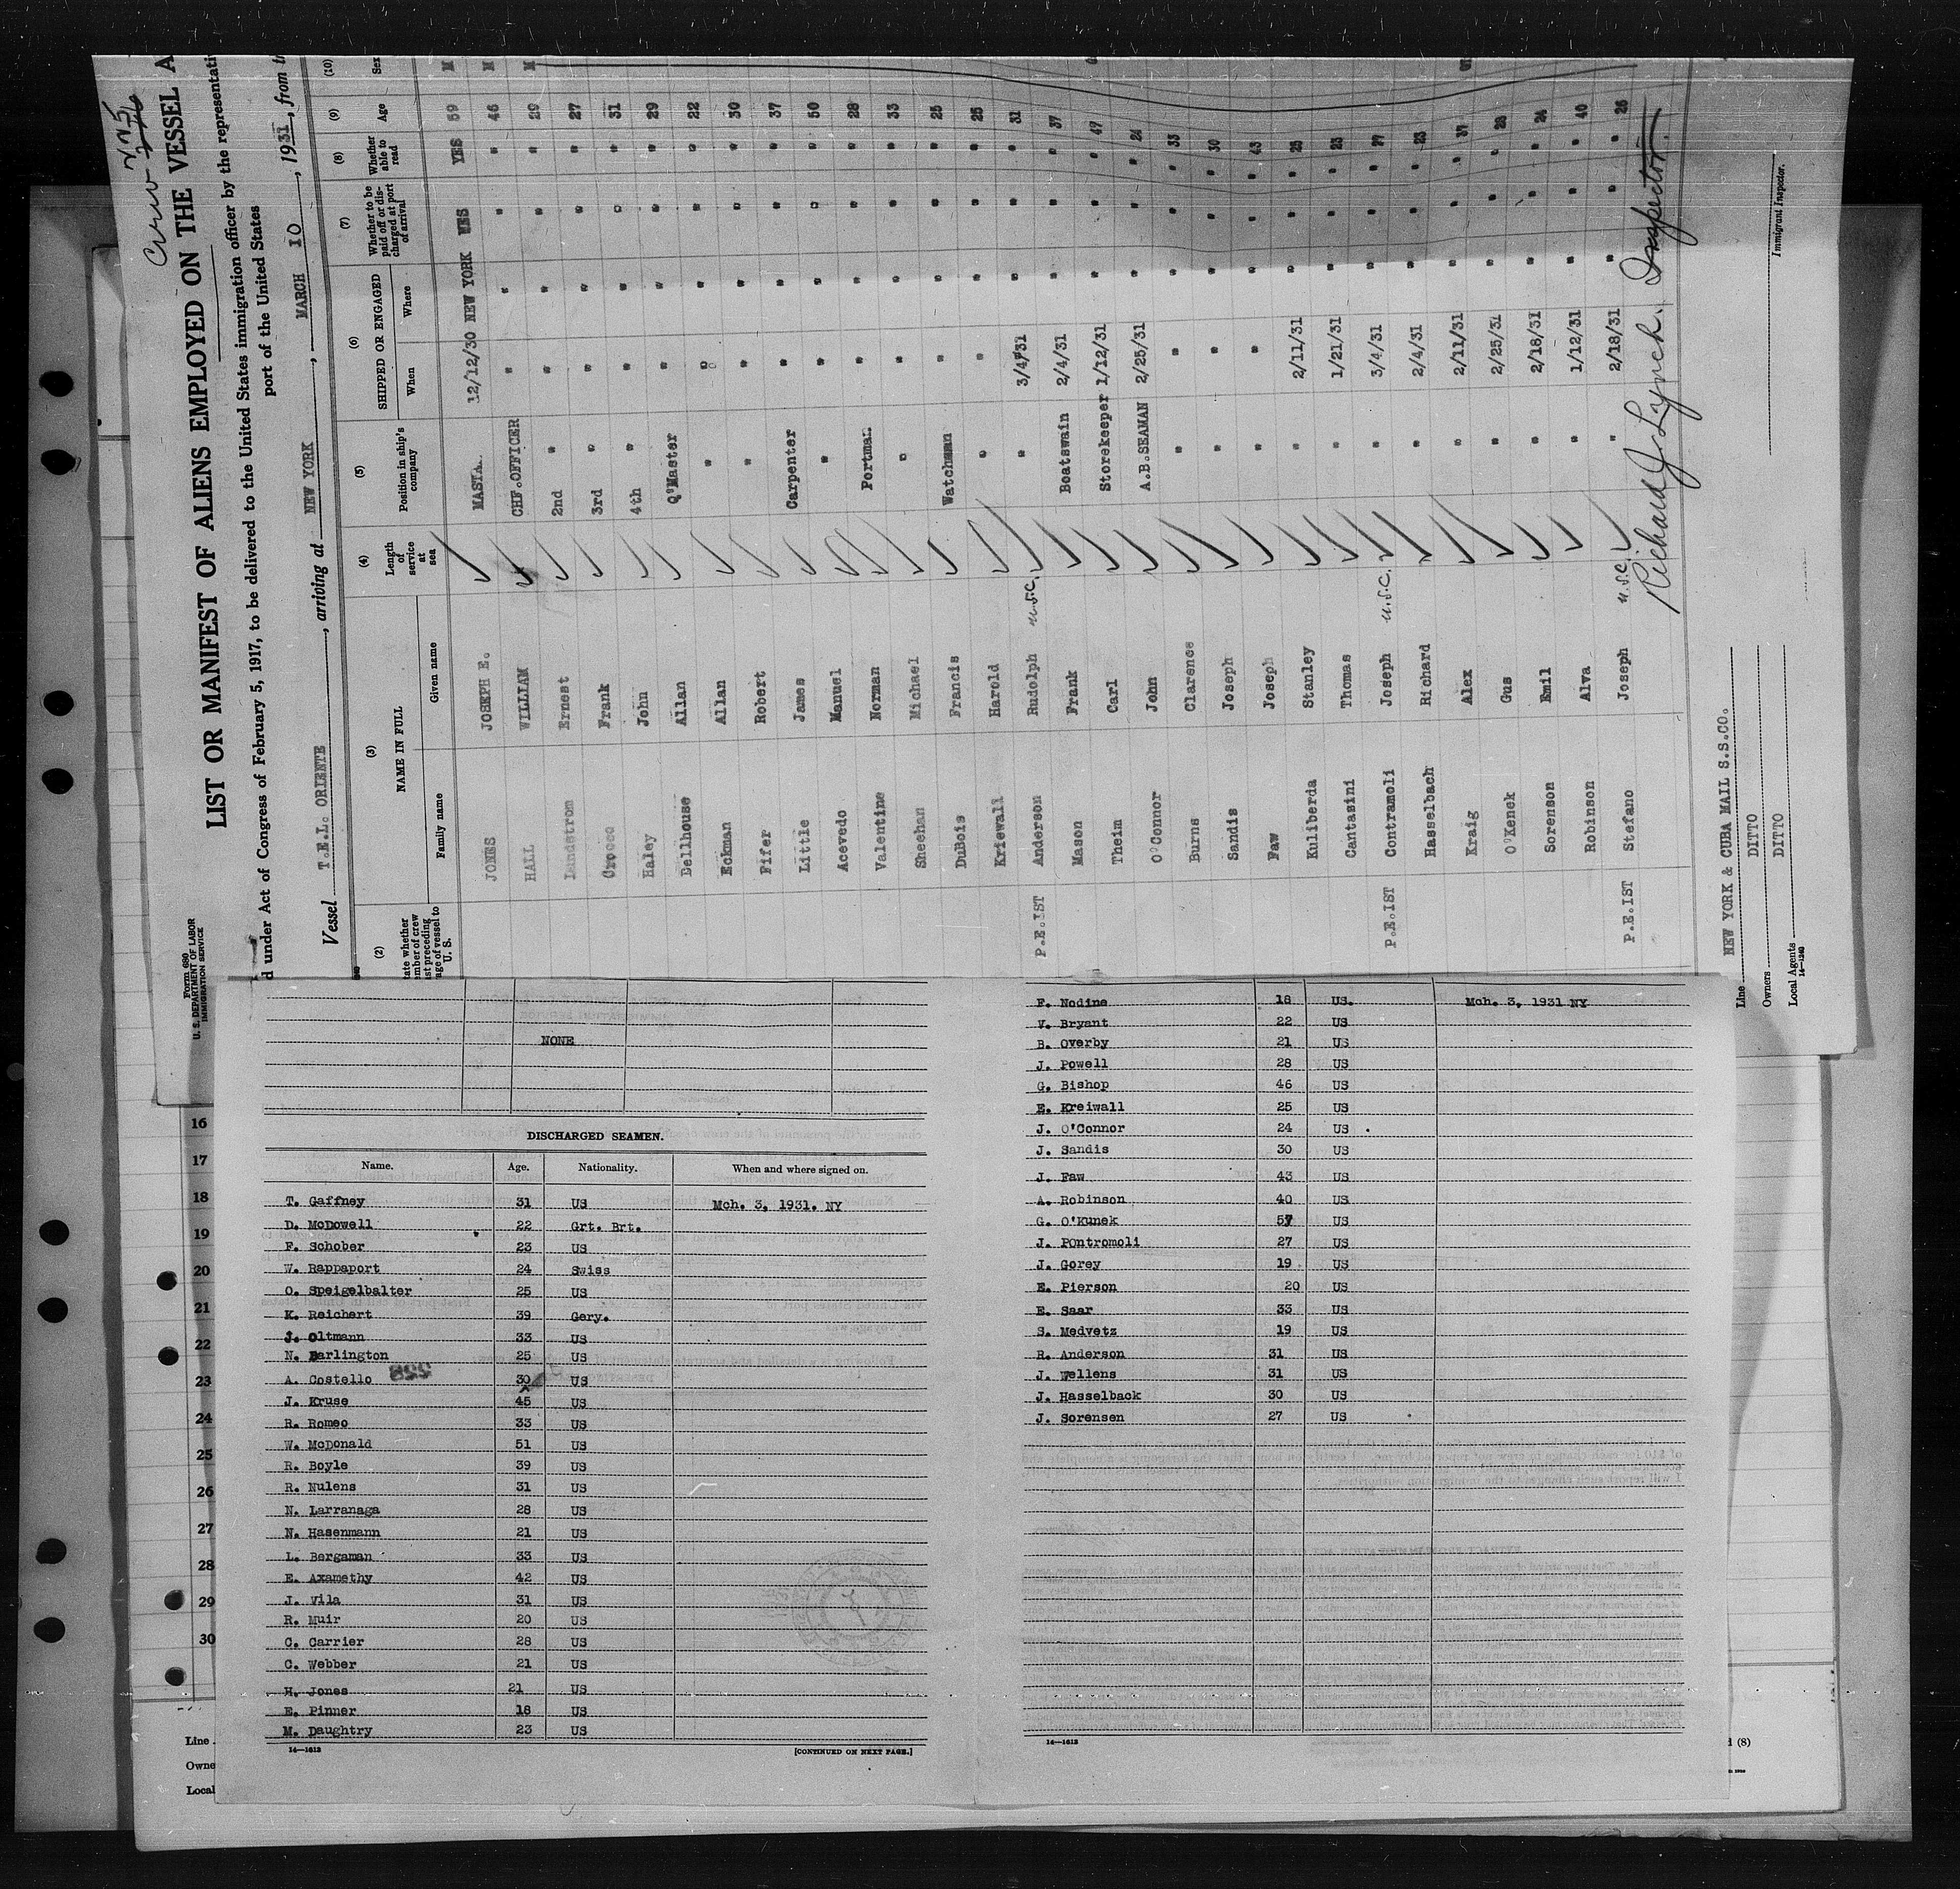 Crew
Form 680
U. S. DEPARTMENT OF LABOR
IMMIGRATION SERVICE
LIST OR MANIFEST OF ALIENS EMPLOYED ON THE VESSEL A
d under Act of Congress of February 5, 1917, to be delivered to the United States immigration officer by the representati
port of the United States
Vessel T.E.L. ORIENTE, arriving at NEW YORK, MARCH 10, 1931, from
(2) (3) (4) (5) (6) (7) (8) (9) (10)
ate whether mber of crew st preceding age of vessel to U. S.
NAME IN FULL
Family name Given name
Length of service at sea
Position in ship's company
SHIPPED OR ENGAGED
When Where
Whether to be paid off or discharged at port of arrival
Whether able to read
Age
Sex
JONES JOSEPH E. MASTA. 12/12/30 NEW YORK YES YES 59 M
HALL WILLIAM CHF.OFFICER " " " " 46 M
Landstrom Ernest 2nd " " " " " 29 M
Crocco Frank 3rd " " " " " 27
Haley John 4th " " " " " 31
Dellhouse Allan Q'Master " " " " 29
Eckman Allan " " " " " 22
Fifer Robert " " " " " 30
Little James Carpenter " " " " 37
Acevedo Manuel " " " " " 50
Valentine Norman Portman " " " " 28
Sheehan Michael " " " " " 33
DuBois Francis Watchman " " " " 25
Kriewall Harold " " " " " 25
P.E.IST Anderson Rudolph U.S.C. " 3/4/31 " " " 31
Mason Frank Boatswain 2/4/31 " " " 37
Theim Carl Storekeeper 1/12/31 " " " 47
O'Connor John A.B.SEAMAN 2/25/31 " " " 24
Burns Clarence " " " " " 33
Sandis Joseph " " " " " 30
Faw Joseph " " " " " 43
Kuliberda Stanley " 2/11/31 " " " 25
Cantasini Thomas " 1/21/31 " " " 23
P.E.IST Contramoli Joseph U.S.C. " 3/4/31 " " " 27
Hasselbach Richard " 2/4/31 " " " 23
Kraig Alex " 2/11/31 " " " 37
O'Kenek Gus " 2/25/31 " " " 28
Sorenson Emil " 2/18/31 " " " 24
Robinson Alva " 1/12/31 " " " 40
P.E.IST Stefano Joseph U.S.C. " 2/18/31 " " " 26
Richard J Lynch. Inspector.
Line NEW YORK & CUBA MAIL S.S.CO.
Owners DITTO
Local Agents DITTO
14—1240
Immigrant Inspector.
NONE
DISCHARGED SEAMEN.
Name. Age. Nationality. When and where signed on.
T. Gaffney 31 US Mch. 3, 1931. NY
D. McDowell 22 Grt. Brt.
F. Schober 23 US
W. Rappaport 24 Swiss
O. Speigelbalter 25 US
K. Reichert 39 Gery.
J. Oltmann 33 US
N. Darlington 25 US
A. Costello 30 US
J. Kruse 45 US
R. Romeo 33 US
W. McDonald 51 US
R. Boyle 39 US
R. Nulens 31 US
N. Larranaga 28 US
N. Hasenmann 21 US
L. Bergaman 33 US
E. Axamethy 42 US
J. Vila 31 US
R. Muir 20 US
C. Carrier 28 US
C. Webber 21 US
H. Jones 21 US
E. Pinner 18 US
M. Daughtry 23 US
14—1613 [CONTINUED ON NEXT PAGE.]
F. Nodine 18 US. Mch. 3, 1931 NY
V. Bryant 22 US
B. Overby 21 US
J. Powell 28 US
G. Bishop 46 US
E. Kreiwall 25 US
J. O'Connor 24 US
J. Sandis 30 US
J. Faw 43 US
A. Robinson 40 US
G. O'Kunek 57 US
J. Pontromoli 27 US
J. Gorey 19 US
E. Pierson 20 US
E. Saar 33 US
S. Medvetz 19 US
R. Anderson 31 US
J. Wellens 31 US
J. Hasselback 30 US
J. Sorensen 27 US
14—1613
16
17
18
19
20
21
22
23
24
25
26
27
28
29
30
Line
Owne
Local
(8)